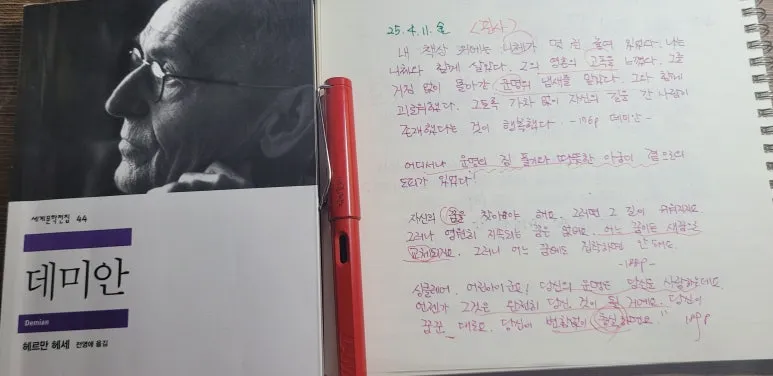 세계문학전집 44
데미안
Demian
헤르만 헤세 전영애 옮김
25.4.11.금 <필사>
내 책상 위에는 니체가 몇 권 놓여 있었다. 나는
니체와 함께 살았다. 그의 영혼의 고독을 느꼈다. 그를
거침 없이 몰아간 운명의 냄새를 맡았다. 그와 함께
괴로워했다. 그토록 가차 없이 자신의 길을 간 사람이
존재했다는 것이 행복했다. 데미안-
어디서나 운명의 따뜻한 아궁이 곁으로의
도피가 있었다!
자신의 꿈을 찾아내야 해요. 그러면 그 길이 쉬워지지요
그러나 영원히 지속되는 꿈은 없어요. 어느 꿈이든 새 꿈으로
교체되지요. 그러니 어느 꿈에도 집착하면 안 되어요.
싱클레어. 어린아이군요! 당신의 운명은 당신을 사랑하는데요
언젠가 그것은 완전히 당신 것이 될 거예요. 당신이
꿈꾼 대로요. 당신이 변함없이 충실하면요."